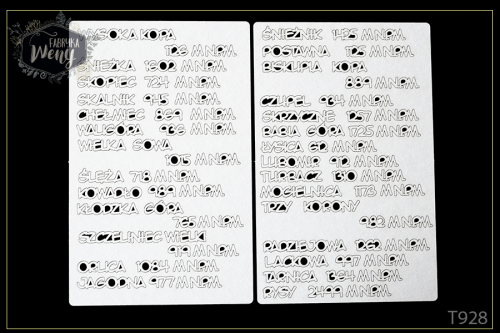 FABRYKA
Weny
WYSOKA KOPA
1126 M NPM
ŚNIEŻKA 1602 M NPM
SKOPIEC 724 M NPM
SKALNIK 945 M NPM
CHEŁMIEC 869 M NPM
WALIGÓRA 936 M NPM
WIELKA SOWA
1015 M NPM
ŚLĘŻA 718 M NPM
KOWADŁO 989 M NPM
KŁODZKA GÓRA
765 M NPM
SZCZELINIEC WIELKI
919 M NPM
ORLICA 1084 M NPM
JAGODNA 977 M NPM
ŚNIEŻNIK 1425 M NPM
POSTAWNA 1125 M NPM
BISKUPIA KOPA
889 M NPM
CZUPEL 934 M NPM
SKRZYCZNE 1257 M NPM
BABIA GÓRA 1725 M NPM
ŁYSICA 612 M NPM
LUBOMIR 912 M NPM
TURBACZ 1310 M NPM
MOGIELNICA 1173 M NPM
TRZY KORONY
982 M NPM
RADZIEJOWA 1262 M NPM
LACKOWA 997 M NPM
TARNICA 1364 M NPM
RYSY 2499 M NPM
T928